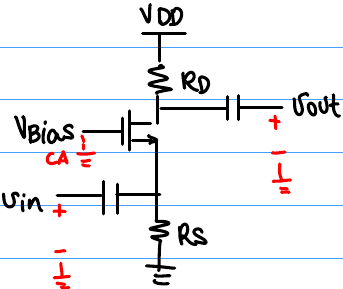 VDD
RD
Vout
+
VBias
CA
-
vin
+
RS
-